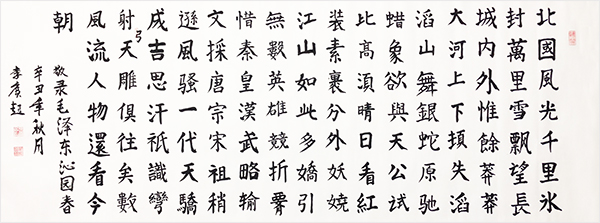 北國風光千里氷
封萬里雪飄望長
城内外惟餘莽莽
大河上下頓失滔
滔山舞銀蛇原驰
蜡象欲與天公試
比高須晴日看紅
裝素裹分外妖嬈
江山如此多嬌引
無數英雄競折
惜秦皇漢武略輸
文採唐宗宋祖稍
遜風騷一代天驕
成吉思汗祇識彎
弓射天雕俱往矣數
風流人物還看今
朝
敬录毛泽东沁园春
辛丑年秋月
李